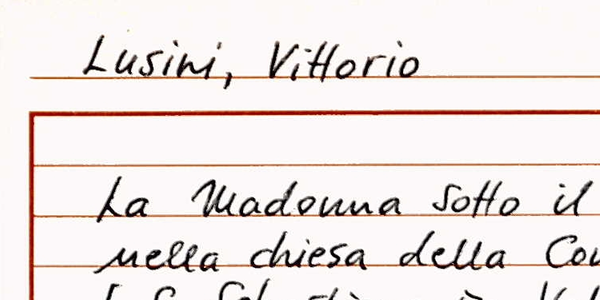 Lusini, Vittorio
La Madonna sotto il
nella chiesa della